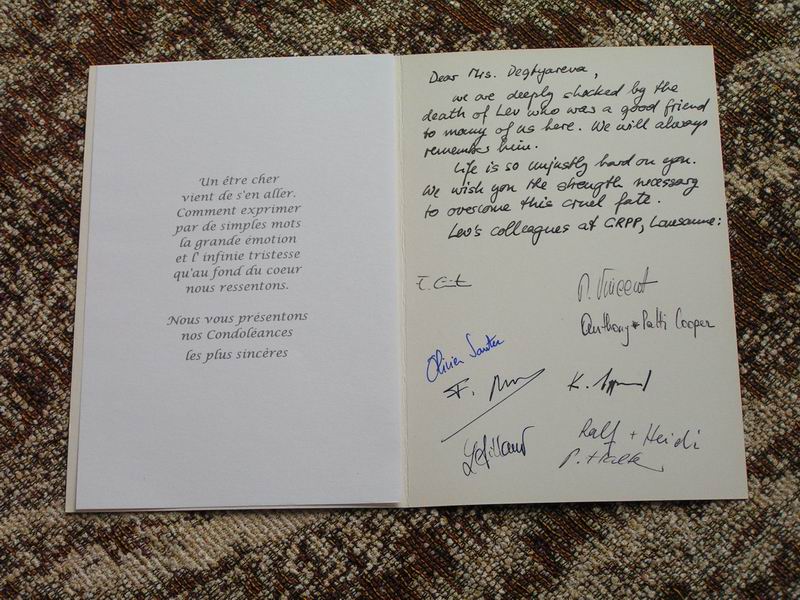 Un être cher
vient de s'en aller.
Comment exprimer
par de simples mots
la grande émotion
et l' infinie tristesse
qu'au fond du coeur
nous ressentons.
Nous vous présentons
nos Condoléances
les plus sincères
Dear Mrs. Degtyareva,
we are deeply shocked by the
death of Lev who was a good friend
to many of us here. We will always
remember him.
Life is so unjustly hard on you.
We wish you the strength necessary
to overcome this cruel fate.
Lev's colleagues at CRPP, Lausanne:
Vincent
Anthony + Patti Cooper
Olivier Sauter
F.
K.
Ralf + Heidi